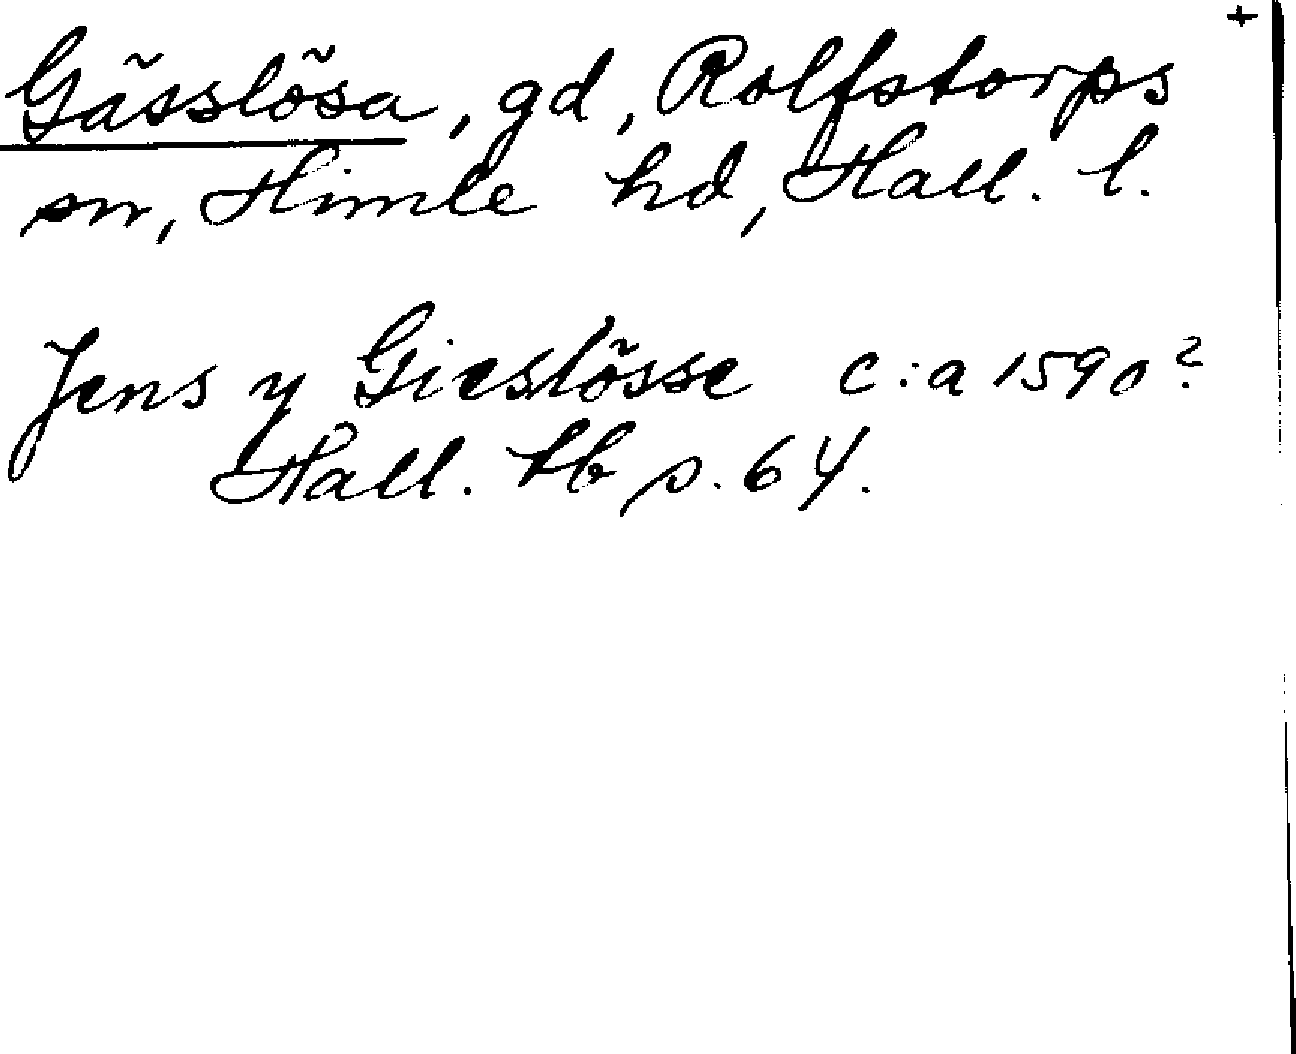 +
Gässlösa, gd, Rolfstorps
sn, Himle hd, Hall. l.
Jens y Gieslösse c:a 1590?
Hall. tb s. 64.